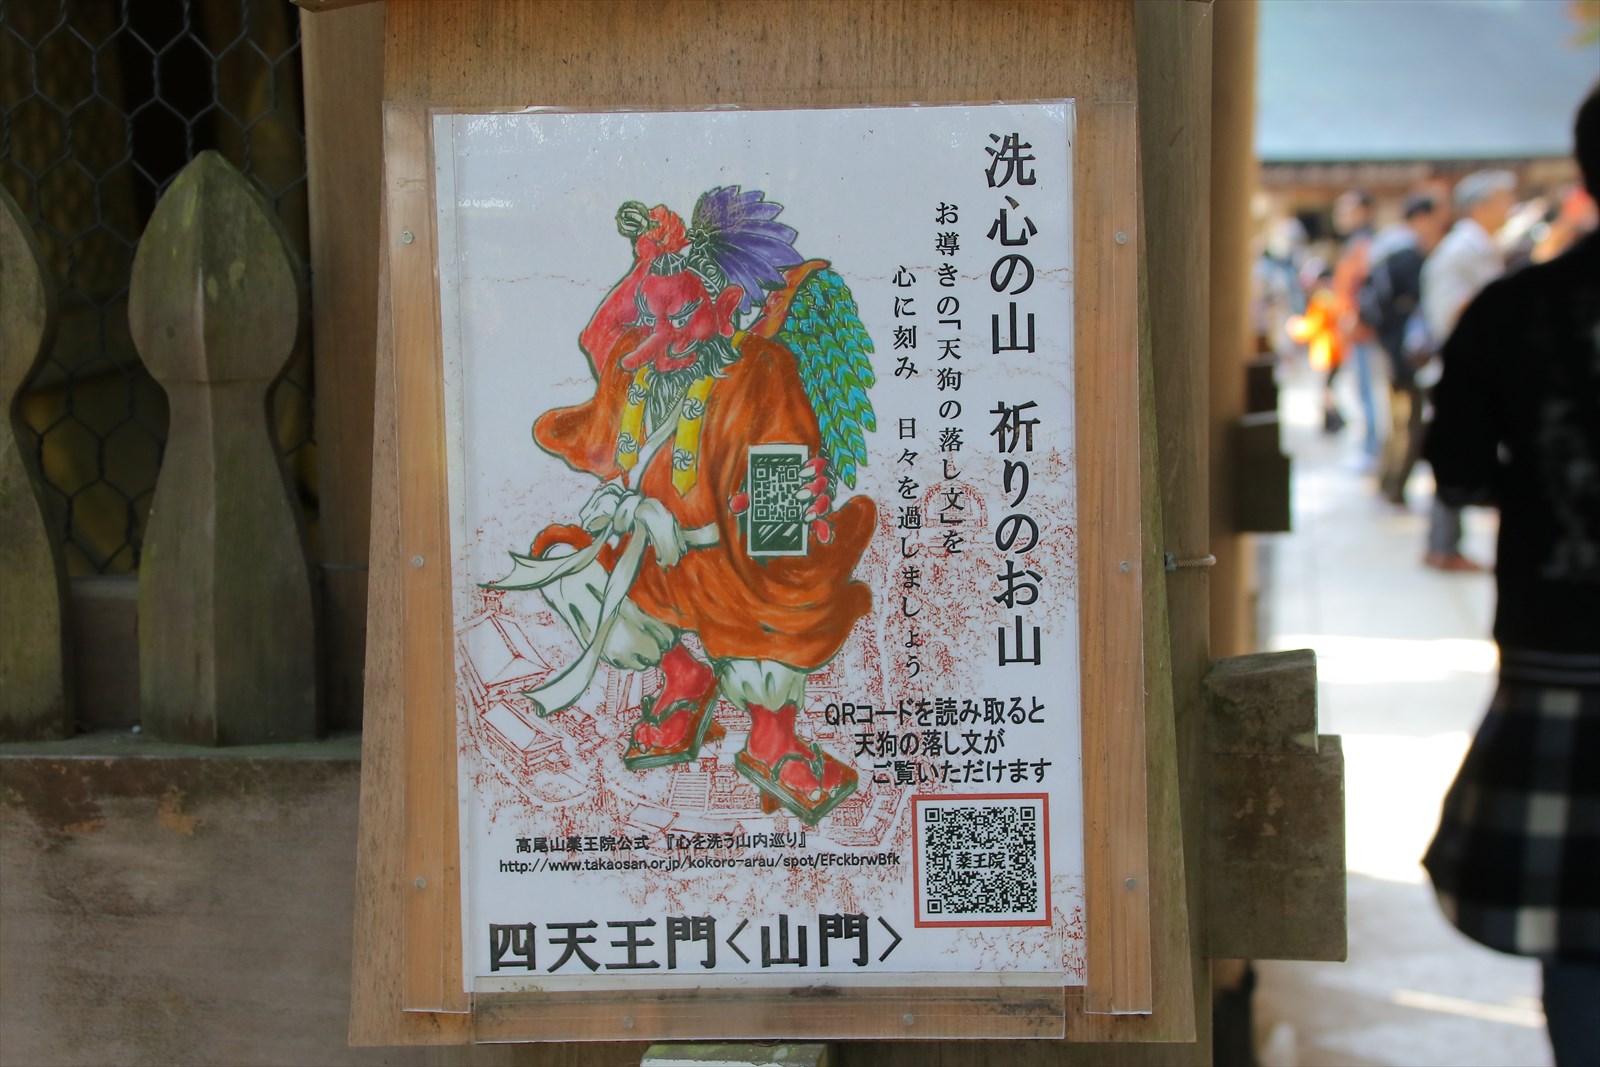 洗心の山 祈りのお山
お導きの「天狗の落し文」を
心に刻み 日々を過しましょう
QRコードを読み取ると
天狗の落し文が
ご覧いただけます
薬王院
高尾山薬王院公式 『心を洗う山内巡り』
http://www.takaosan.or.jp/kokoro-arau/spot/EFckbrwBfk
四天王門＜山門＞